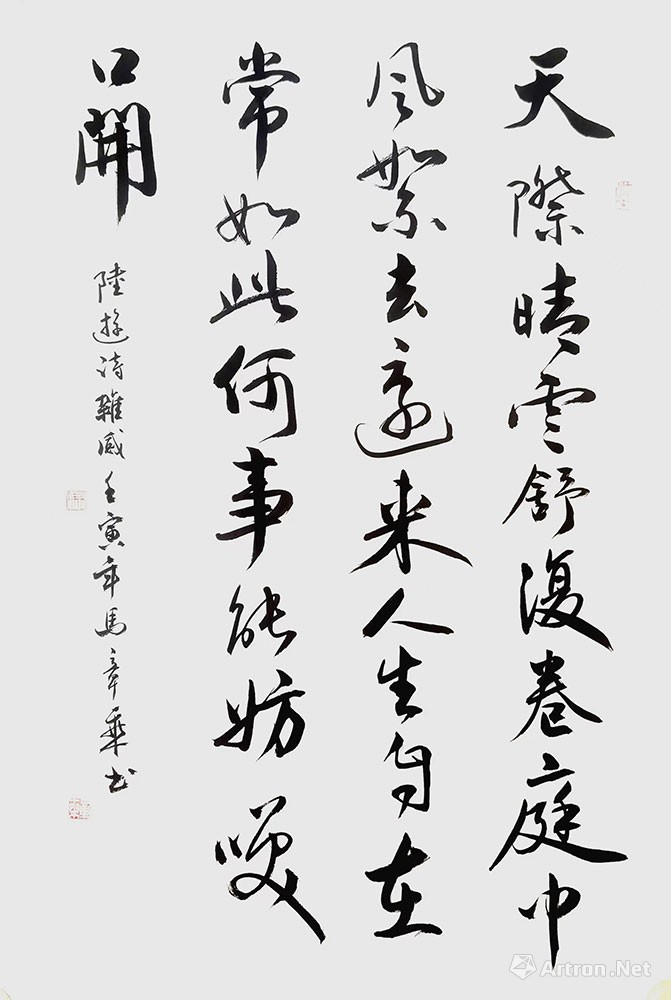 天際晴雲舒復卷庭中
風絮去還来人生自在
常如此何事能妨笑
口開
陸游詩雜感壬寅年馬章乘书
Artron.Net